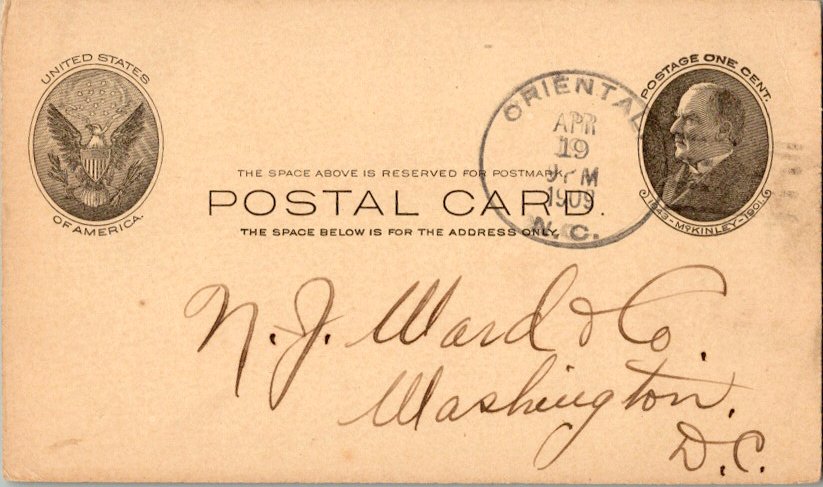 UNITED STATES
OF AMERICA.
POSTAGE ONE CENT.
1843-McKINLEY-1901.
ORIENTAL
APR
19
PM
1909
N.C.
THE SPACE ABOVE IS RESERVED FOR POSTMARK.
POSTAL CARD.
THE SPACE BELOW IS FOR THE ADDRESS ONLY.
N. J. Ward & Co.
Washington,
D.C.